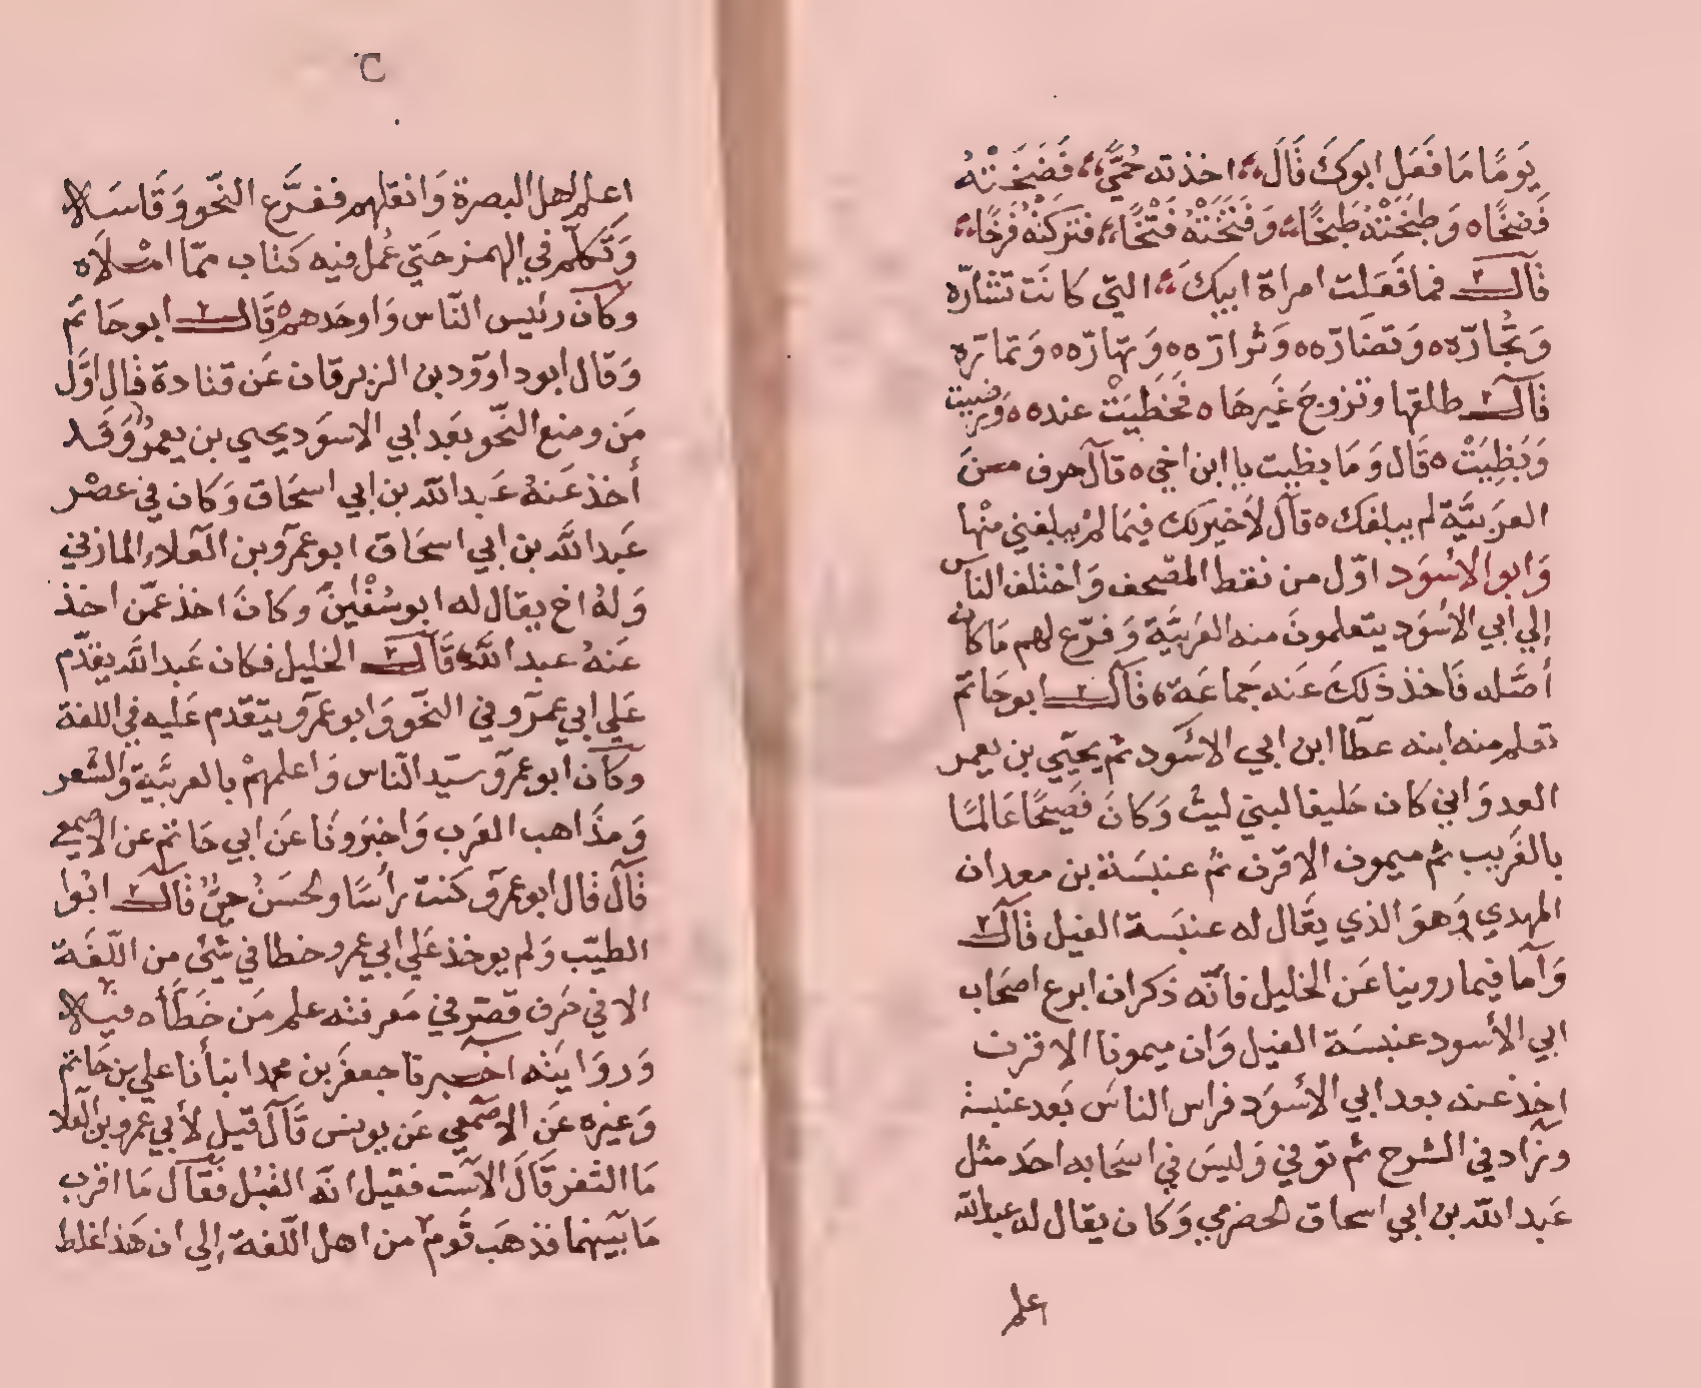 يَومًا مَا فَعَل ابوكَ قَالَ اخذته حُمَّي فَضَخَتْهُ
فَضخًا وَطبَخَتْهُ طَبخًا وَفَتَخَتْهُ فَتْخًا فتركتهُ فَرخًا
قال فما فَعَلت امراة ابيكَ التي كانَت تشارّه
وَتُجَارّه وَتضَارّه وَتُزارّه وَتهَارّه وَتمارّه
قال طلقها وتزوجَ غَيرهَا فَحَظِيَتْ عنده وَرضيت
وَبَظِيَتْ قَال وَمَا بظيت يا ابن اخي قآل حرف مِنَ
العَربيَّة لم يبلغك قآل لاَخيرلك فيمَا لم يبلغني منْها
وَابوالاسْوَد اوّل من نقط المصْحف وَاختلف الناس
إلي ابي الاسْوَد يتعلمونَ منه العَربيَّة وَفرّع لهم مَا كان
أصّله فَاخذ ذَلكَ عَنه جَماعَة قال ابو حَاتم
تعلم منه ابنه عطآ ابن ابي الاسْوَد ثم يحيَي بن يعمر
العدوَاني كان حَليفا لبني ليث وَكانَ فَصيحًا عَالمًا
بالغَريب ثم ميمون الاقرن ثم عنبسَة بن معدان
المهدي وَهوَ الذي يقَال له عنبَسة الفيل قال
وَآمَا فيما روينا عَن الخليل فانّه ذكر ان ابرع اصحَاب
ابي الأسود عنبسَة الفيل وَان ميمونا الاقرن
اخذ عنه بعد ابي الأسوَد فراس الناسَ بَعد عنبسة
وزاد في الشرح ثم توفي وَليسَ في اصحَابه احَد مثل
عَبد الله بن ابي اسحاق الحضرمي وَكان يقال له عبدالله
اعلم

٢
اعلم اهل البصرة وَانقلهم ففرَّع النّحو وَقَاسَهُ
وَتكلّم في الهمز حَتي عُمل فيه كتاب ممّا املاَه
وكان رئيس النّاس وَاوحَدهم قال ابو حَاتم
وَقال ابو داوود بن الزبرقان عَن قتادة قال اوَّل
مَن وضع النّحو بَعد ابي الاسوَد يحيي بن يعمر وَقَد
أخذ عَنهُ عَبد الله بن ابي اسحَاق وَكان في عصْر
عَبد الله بن ابي اسحَاق ابو عمرو بن العَلاء المازني
وَلهُ اخ يقال له ابو سُفْيٰن وكانَ اخذ عمّن اخذ
عَنهُ عبد الله قال الخليل فكان عَبد الله يقدّم
عَلي ابي عمرو في النّحو وَابو عمرو يتقدم عَليه في اللغة
وكان ابو عمرو سيّد النّاس وَاعلمهمْ بالعربيَّة وَالشعر
وَمذَاهب العَرب وَاخبَرونَا عَن ابي حَاتم عن الاصمعي
قآل قال ابو عمرو كنت رأسًا والحسَنُ حيٌّ قال ابوا
الطيّب وَلم يوخذ عَلي ابي عمرو خطا في شئ من اللّغَة
الا في حَرف قصّر في مَعرفته علم مَن خَطَّأه فيه
وَروَايتْه اخبرنا جعفَر بن محمد انبأنا علي بن حَاتم
وَغيره عَن الاصمعي عَن يونس قَآل قيل لأبي عمرو بن العَلا
مَا الثفر قَالَ الاست فقيل انّه القبُل فقَآل مَا اقرب
مَا بَينهما فذهَب قَوم من اهل اللّغة إلي ان هَذا غلط